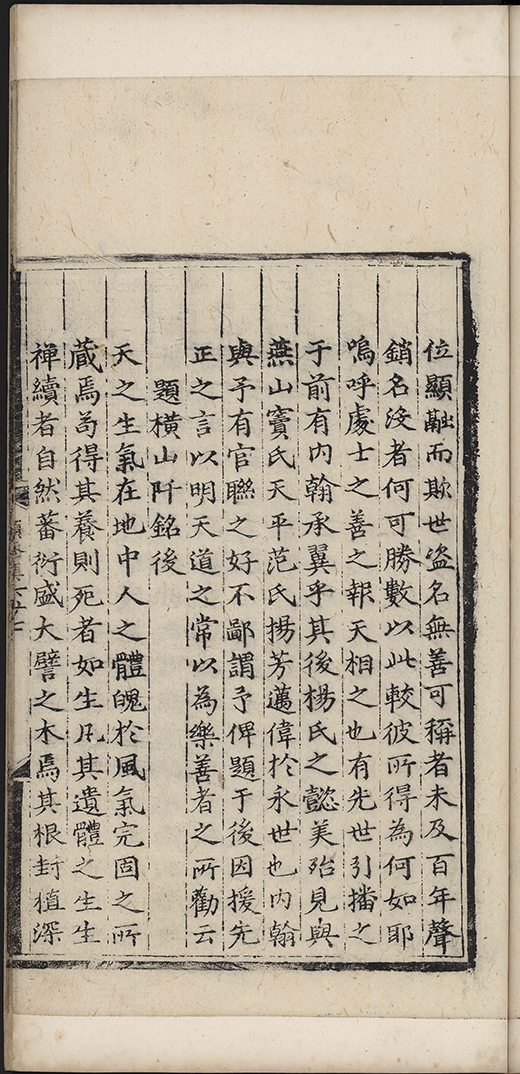 位顯融而欺世盗名無善可稱者未及百年聲
銷名没者何可勝數以此較彼所得為何如耶
嗚呼處士之善之報天相之也有先世引播之
于前有内翰承翼乎其後楊氏之懿美殆見與
燕山竇氏天平范氏揚芳邁偉於永世也内翰
與予有官聯之好不鄙謂予俾題于後因援先
正之言以明天道之常以為樂善者之所勸云
題橫山阡銘後
天之生氣在地中人之體魄於風氣完固之所
藏焉苟得其養則死者如生凡其遺體之生生
禅續者自然蕃衍盛大譬之木焉其根封植深